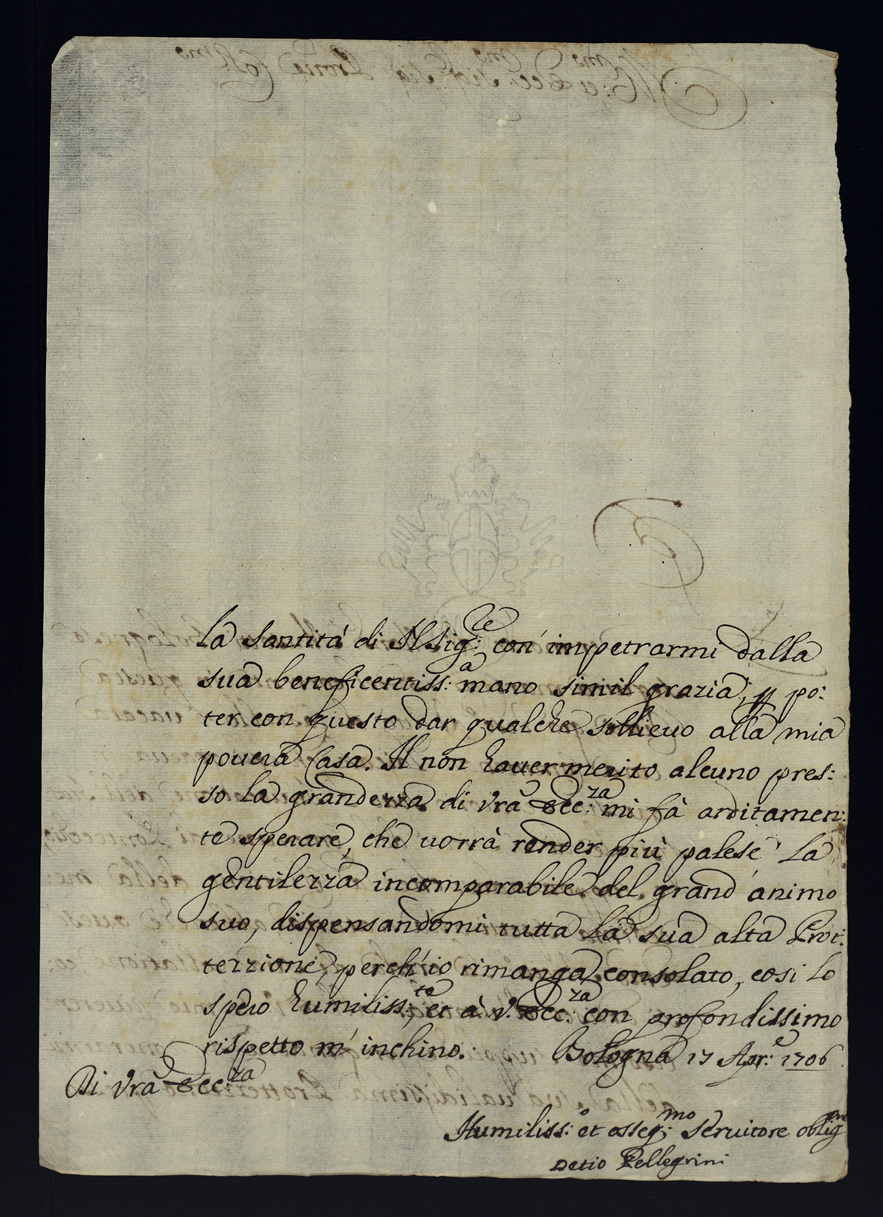 la Santità di N Sig:re con impetrarmi dalla
sua beneficentiss:a mano simil grazia, p po:
ter con questo dar qualche sollieuo alla mia
pouera Casa. Il non hauer merito alcuno pres:
so la grandezza di Vrã Ecc:za mi fà arditamen:
te sperare, che uorrà render più palese la
gentilezza incomparabile del grand'animo
suo, dispensandomi tutta la sua alta Prot:
tezzione, perch'io rimanga consolato, così lo
spero humiliss:te, et à V. Ecc:za con profondissimo
rispetto m'inchino. Bologna 17 Apr:e 1706
Di Vrã Ecc:za
Humiliss:o et osseq:mo Seruitore oblig:mo
Detio Pellegrini